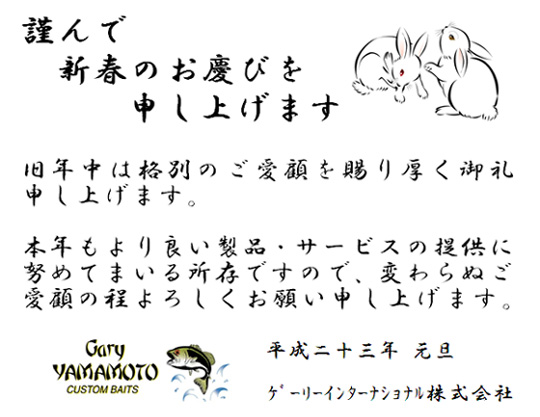 謹んで
新春のお慶びを
申し上げます
旧年中は格別のご愛顧を賜り厚く御礼
申し上げます。
本年もより良い製品・サービスの提供に
努めてまいる所存ですので、変わらぬご
愛顧の程よろしくお願い申し上げます。
Gary
YAMAMOTO
CUSTOM BAITS
平成二十三年 元旦
ｹﾞｰリーインターナショナル株式会社